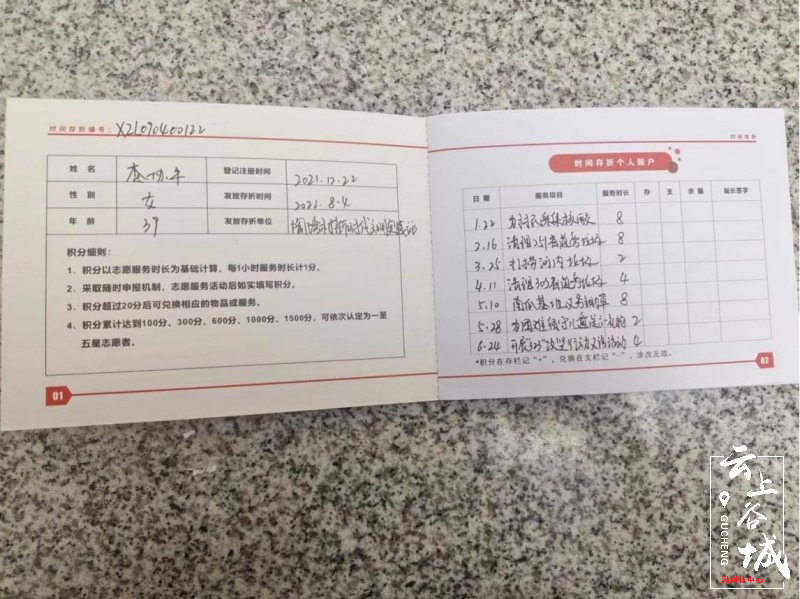 时间存折编号：XZL090400122
姓 名 登记注册时间 2021.12.22
性 别 女 发放存折时间 2022.8.4
年 龄 39 发放存折单位
积分细则：
1、积分以志愿服务时长为基础计算，每1小时服务时长计1分。
2、采取随时申报机制，志愿服务活动后如实填写积分。
3、积分超过20分后可兑换相应的物品或服务。
4、积分累计达到100分、300分、600分、1000分、1500分，可依次认定为一至
五星志愿者。
01
时间存折
时间存折个人账户
日 期 服务项目 服务时长 存 支 余 额 站长签字
1.22 为村民采集核酸 8
2.16 清理251省道旁垃圾 8
3.25 打捞河内垃圾 2
4.11 清理303省道旁垃圾 4
5.10 南瓜基地义务锄草 8
5.28 为困难留守儿童送礼物 2
6.24 开展 活动 4
*积分在存栏记"+"，兑换在支栏记"-"，涂改无效。
02
云上谷城
GUCHENG
融媒体中心